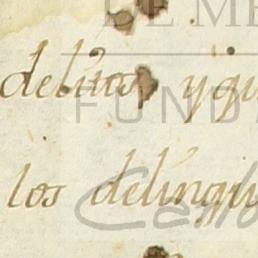 DE ME
delitos, y qu
FUND
los delinqu